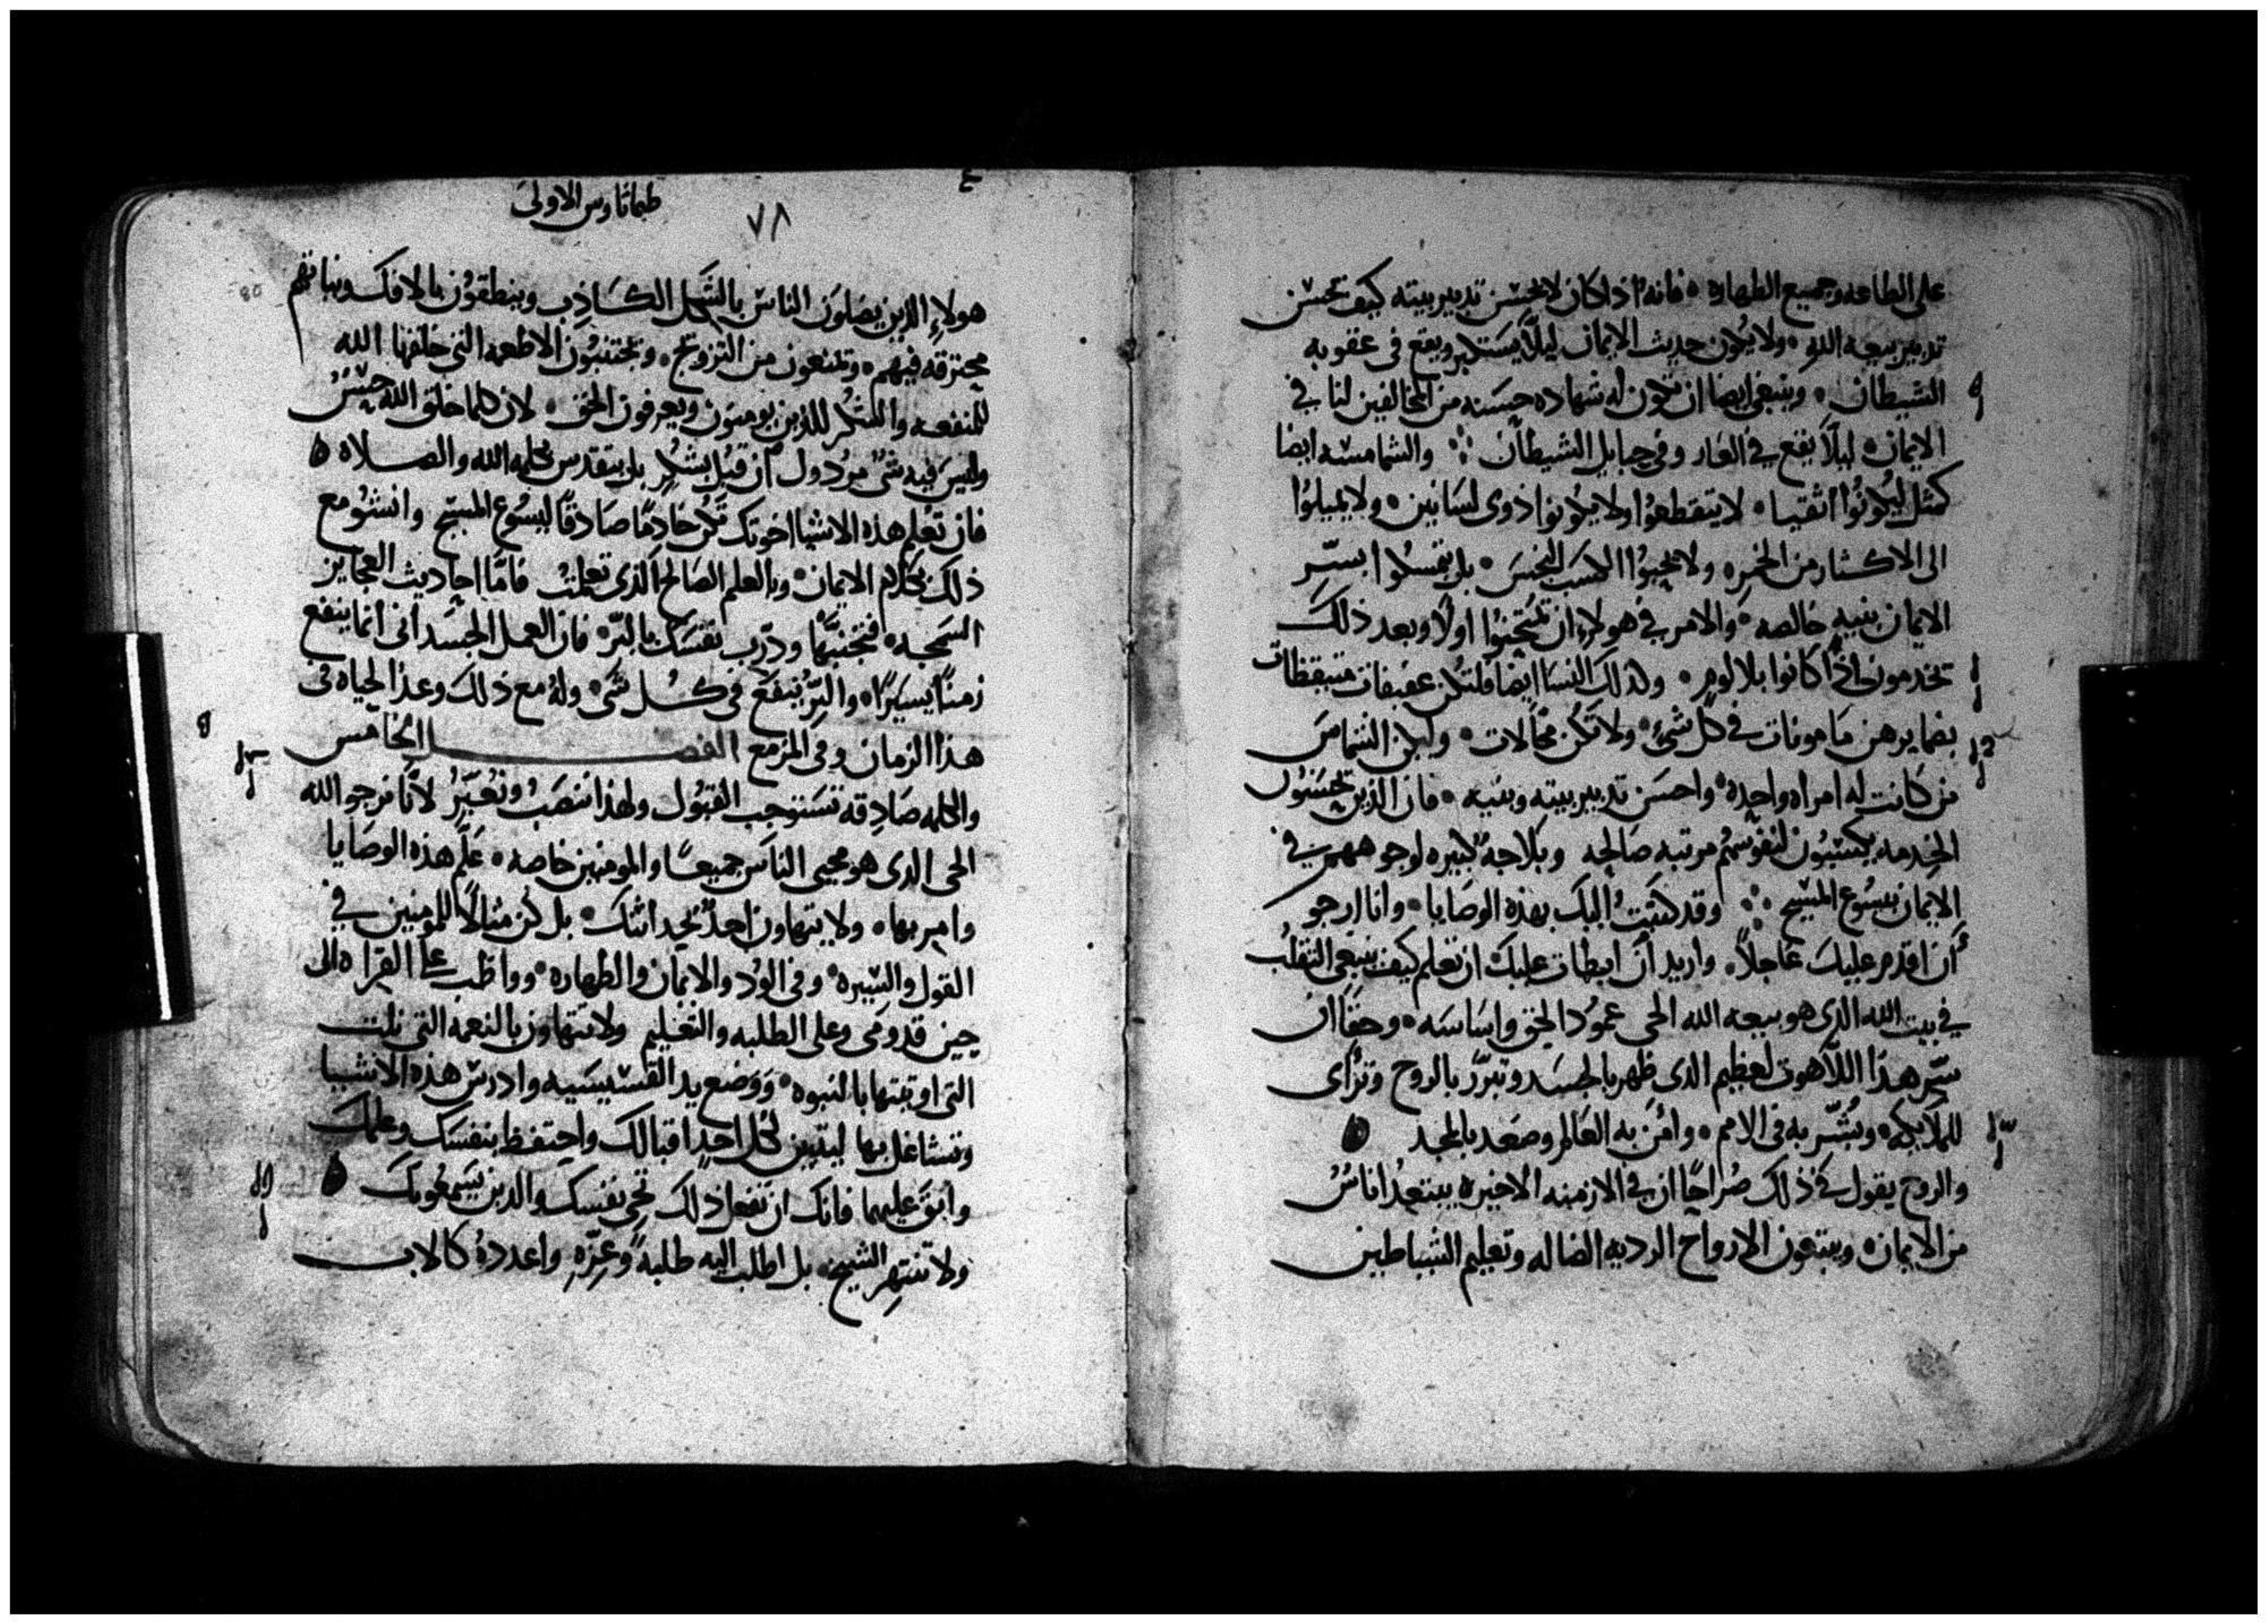 على الطاعه وجميع الطهاره فانه اذا كان لا يحسن تدبير بيته كيف يحسن
تدبير بيعه الله ولا يكون حديث الايمان ليلا يستكبر ويقع فى عقوبه
الشيطان وينبغى ايضا ان تكون له شهاده حسنه من المخالفين لنا في
الايمان ليلا يقع في العار وفى حبايل الشيطان والشمامسه ايضا
كمثل ليكونوا اتقيا لا يتقطعوا ولا يكونوا ذوى لسانين ولا يميلوا
الى الاكثار من الخمر ولا يحبوا الكسب النجس بل يتمسكوا بسر
الايمان بنيه خالصه والامر في هولاء ان يمتحنوا اولا وبعد ذلك
تخدمون اذا كانوا بلا لوم وكذلك النسا ايضا فلتكن عفيفات متيقظات
بضمايرهن مامونات في كل شيء ولا تكن محالات وليكن الشماس
من كانت له امراه واحده واحسن تدبير بيته وبنيه فان الذين يحسنون
الخدمه يكتسبون لنفوسهم مرتبه صالحه وبلاجه كبيره لوجوههم في
الايمان بيسوع المسيح وقد كتبت اليك بهذه الوصايا وانا ارجو
ان اقدم عليك عاجلا واريد ان ابطات عليك ان تعلم كيف ينبغى التقلب
في بيت الله الذى هو بيعه الله الحى عمود الحق واساسه وحقا ان
سر هذا اللاهوت لعظيم الذى ظهر بالجسد وتبرر بالروح وتراى
للملايكه وبشر به فى الامم وامن به العالم وصعد بالمجد
والروح يقول في ذلك صراحا ان في الازمنه الاخيره يبتعد اناس
من الايمان ويتبعون الارواح الرديه الضاله وتعليم الشياطين
٧٨
طيماتاوس الاولى
هولاء الذين يضلون الناس بالشكل الكاذب وينطقون بالافك ونياتهم
محترقه فيهم وتمنعون من التزويج ويجتنبون الاطعمه التى خلقها الله
للمنفعه والشكر للذين يومنون ويعرفون الحق لان كلما خلق الله حسن
وليس فيه شى مردول ان قبل بشكر بل يتقدس بكلمه الله والصلاه
فان تعلم هذه الاشيا اخوتك تكن خادما صادقا ليسوع المسيح وانشو مع
ذلك بكلام الايمان وبالعلم الصالح الذى تعلمت فاما احاديث العجايز
السمجه فتجنبها ودرب نفسك بالبر فان العمل الجسدانى انما ينفع
زمنا يسيرا والبر ينفع فى كل شى وله مع ذلك وعد الحياه فى
هذا الزمان وفى المزمع الفصل الخامس
والكلمه صادقه تستوجب القبول ولهذا ننصب ونعير لانا نرجو الله
الحى الذى هو محيى الناس جميعا والمومنين خاصه علم هذه الوصايا
وامر بها ولا يتهاون احد بحداثتك بل كن مثالا للمومنين في
القول والسيره وفى الود والايمان والطهاره وواظب على القراه الى
حين قدومى وعلى الطلبه والتعليم ولا تتهاون بالنعمه التى نلت
التى اوتيتها بالنبوه ووضع يد القسيسيه وادرس هذه الاشيا
وتشاغل بها ليتبين لكل احد اقبالك واحتفظ بنفسك وعلمك
وابق عليهما فانك ان تفعل ذلك تحى نفسك والذين يسمعونك
ولا تنتهر الشيخ بل اطلب اليه طلبه وعزه واعدده كالاب